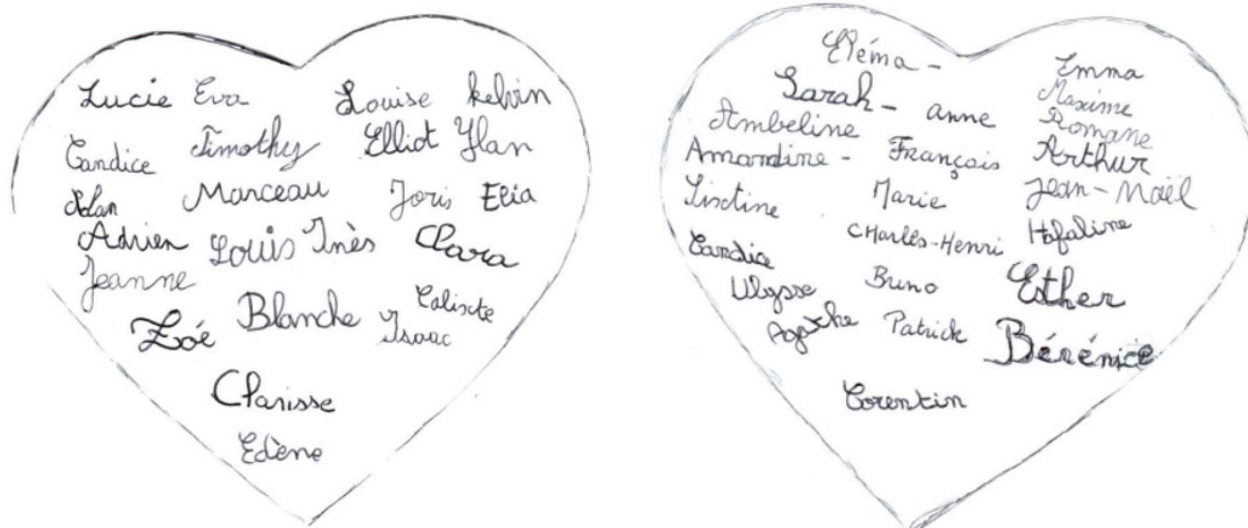 Lucie Eva Louise Kelvin
Candice Timothy Elliot Ylan
Marceau Joris Elia
Adrien Louis Inès Clara
Jeanne
Zoé Blanche Calixte
Isaac
Clarisse
Edène
Eléma -
Sarah - anne Emma
Maxime
Ambeline Romane
Amandine - François Arthur
Sixtine Marie Jean-Maël
CHarles-Henri
Candice
Ulysse Bruno Esther
Agathe Patrick Bérénice
Corentin